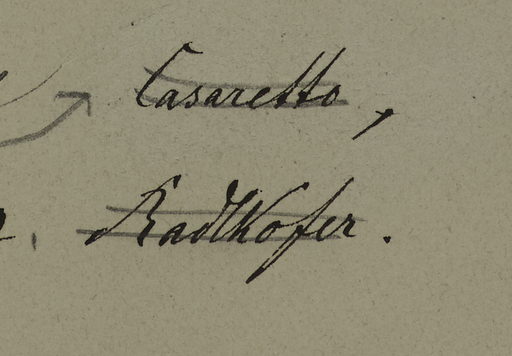 Casaretto,
Radlkofer.